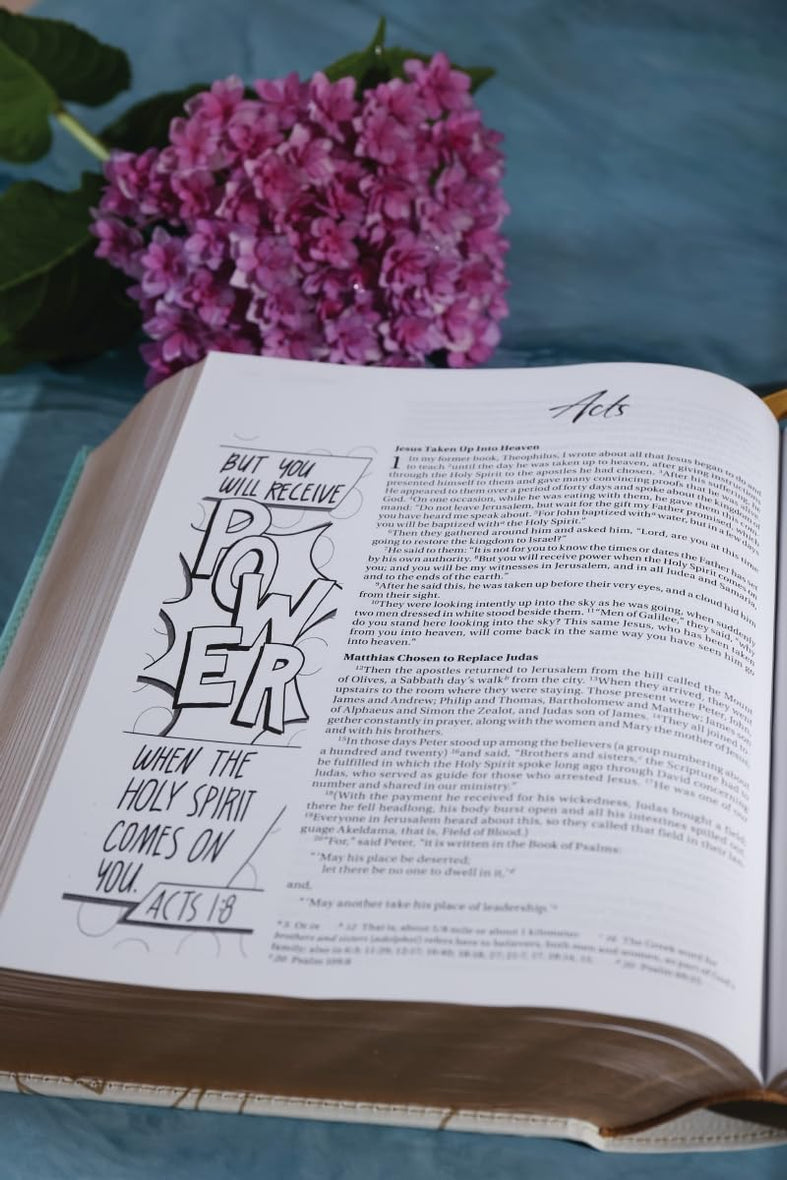 Acts
BUT YOU
WILL RECEIVE
POWER
WHEN THE
HOLY SPIRIT
COMES ON
YOU.
ACTS 1:8
Jesus Taken Up Into Heaven
1 In my former book, Theophilus, I wrote about all that Jesus began to do and
to teach 2until the day he was taken up to heaven, after giving instructions
through the Holy Spirit to the apostles he had chosen. 3After his suffering, he
presented himself to them and gave many convincing proofs that he was alive.
He appeared to them over a period of forty days and spoke about the kingdom of
God. 4On one occasion, while he was eating with them, he gave them this com-
mand: "Do not leave Jerusalem, but wait for the gift my Father promised, which
you have heard me speak about. 5For John baptized with a water, but in a few days
you will be baptized with a the Holy Spirit."
6Then they gathered around him and asked him, "Lord, are you at this time
going to restore the kingdom to Israel?"
7He said to them: "It is not for you to know the times or dates the Father has set
by his own authority. 8But you will receive power when the Holy Spirit comes on
you; and you will be my witnesses in Jerusalem, and in all Judea and Samaria,
and to the ends of the earth."
9After he said this, he was taken up before their very eyes, and a cloud hid him
from their sight.
10They were looking intently up into the sky as he was going, when suddenly
two men dressed in white stood beside them. 11"Men of Galilee," they said, "why
do you stand here looking into the sky? This same Jesus, who has been taken
from you into heaven, will come back in the same way you have seen him go
into heaven."
Matthias Chosen to Replace Judas
12Then the apostles returned to Jerusalem from the hill called the Mount
of Olives, a Sabbath day's walk b from the city. 13When they arrived, they went
upstairs to the room where they were staying. Those present were Peter, John,
James and Andrew; Philip and Thomas, Bartholomew and Matthew; James son
of Alphaeus and Simon the Zealot, and Judas son of James. 14They all joined to-
gether constantly in prayer, along with the women and Mary the mother of Jesus,
and with his brothers.
15In those days Peter stood up among the believers (a group numbering about
a hundred and twenty) 16and said, "Brothers and sisters, c the Scripture had to
be fulfilled in which the Holy Spirit spoke long ago through David concerning
Judas, who served as guide for those who arrested Jesus. 17He was one of our
number and shared in our ministry."
18(With the payment he received for his wickedness, Judas bought a field;
there he fell headlong, his body burst open and all his intestines spilled out.
19Everyone in Jerusalem heard about this, so they called that field in their lan-
guage Akeldama, that is, Field of Blood.)
20"For," said Peter, "it is written in the Book of Psalms:
"'May his place be deserted;
let there be no one to dwell in it,' d
and,
"'May another take his place of leadership.' e
a 5 Or in b 12 That is, about 5/8 mile or about 1 kilometer c 16 The Greek word for
brothers and sisters (adelphoi) refers here to believers, both men and women, as part of God's
family; also in
d 20 Psalm 69:25
e 20 Psalm 109:8